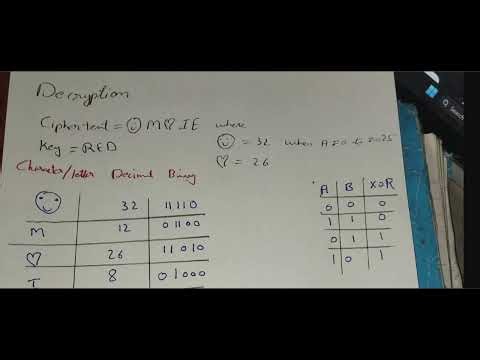 Decryption
Ciphertext = ☺M♡IE where
☺ = 32 when A=0 to Z=25
Key = RED
♡ = 26
Character/letter Decimal Binary
☺ 32 11110
M 12 01100
♡ 26 11010
I 8 01000
A B XOR
0 0 0
1 1 0
0 1 1
1 0 1